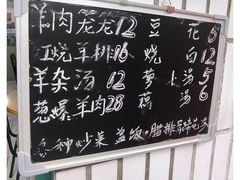 羊肉龙龙12 豆 花 5
红烧羊排16 烧 白 12
羊杂汤 12 葱 上 汤 5
葱爆羊肉28 藕 汤 6
各种炒菜 盖饭 腊排